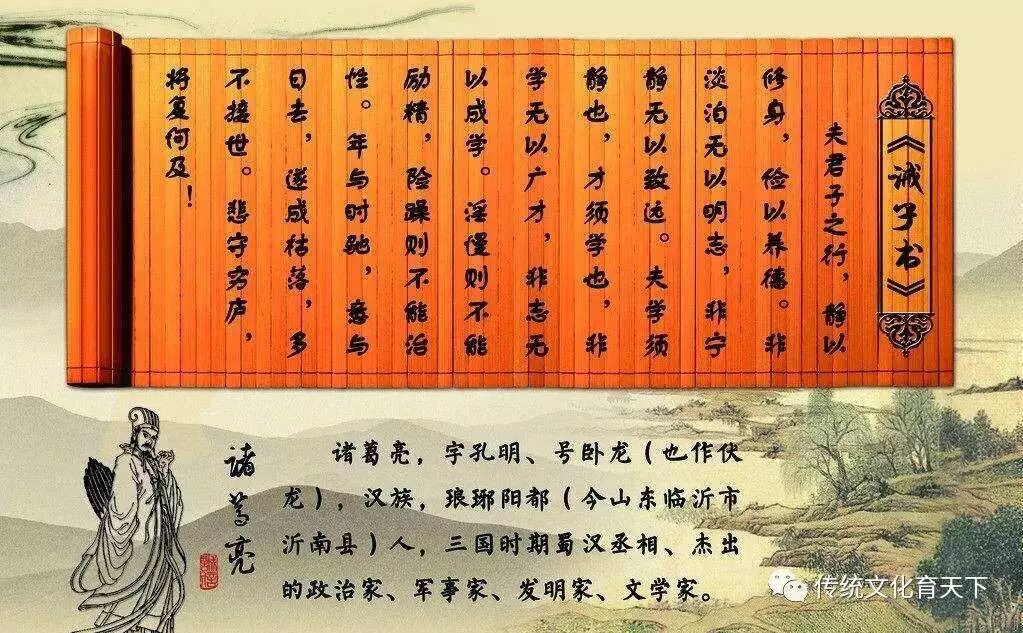 《诫子书》
夫君子之行，静以
修身，俭以养德。非
淡泊无以明志，非宁
静无以致远。夫学须
静也，才须学也，非
学无以广才，非志无
以成学。淫慢则不能
励精，险躁则不能治
性。年与时驰，意与
日去，遂成枯落，多
不接世。悲守穷庐，
将复何及！
诸葛亮
诸葛亮，字孔明、号卧龙（也作伏
龙），汉族，琅琊阳都（今山东临沂市
沂南县）人，三国时期蜀汉丞相、杰出
的政治家、军事家、发明家、文学家。
传统文化育天下